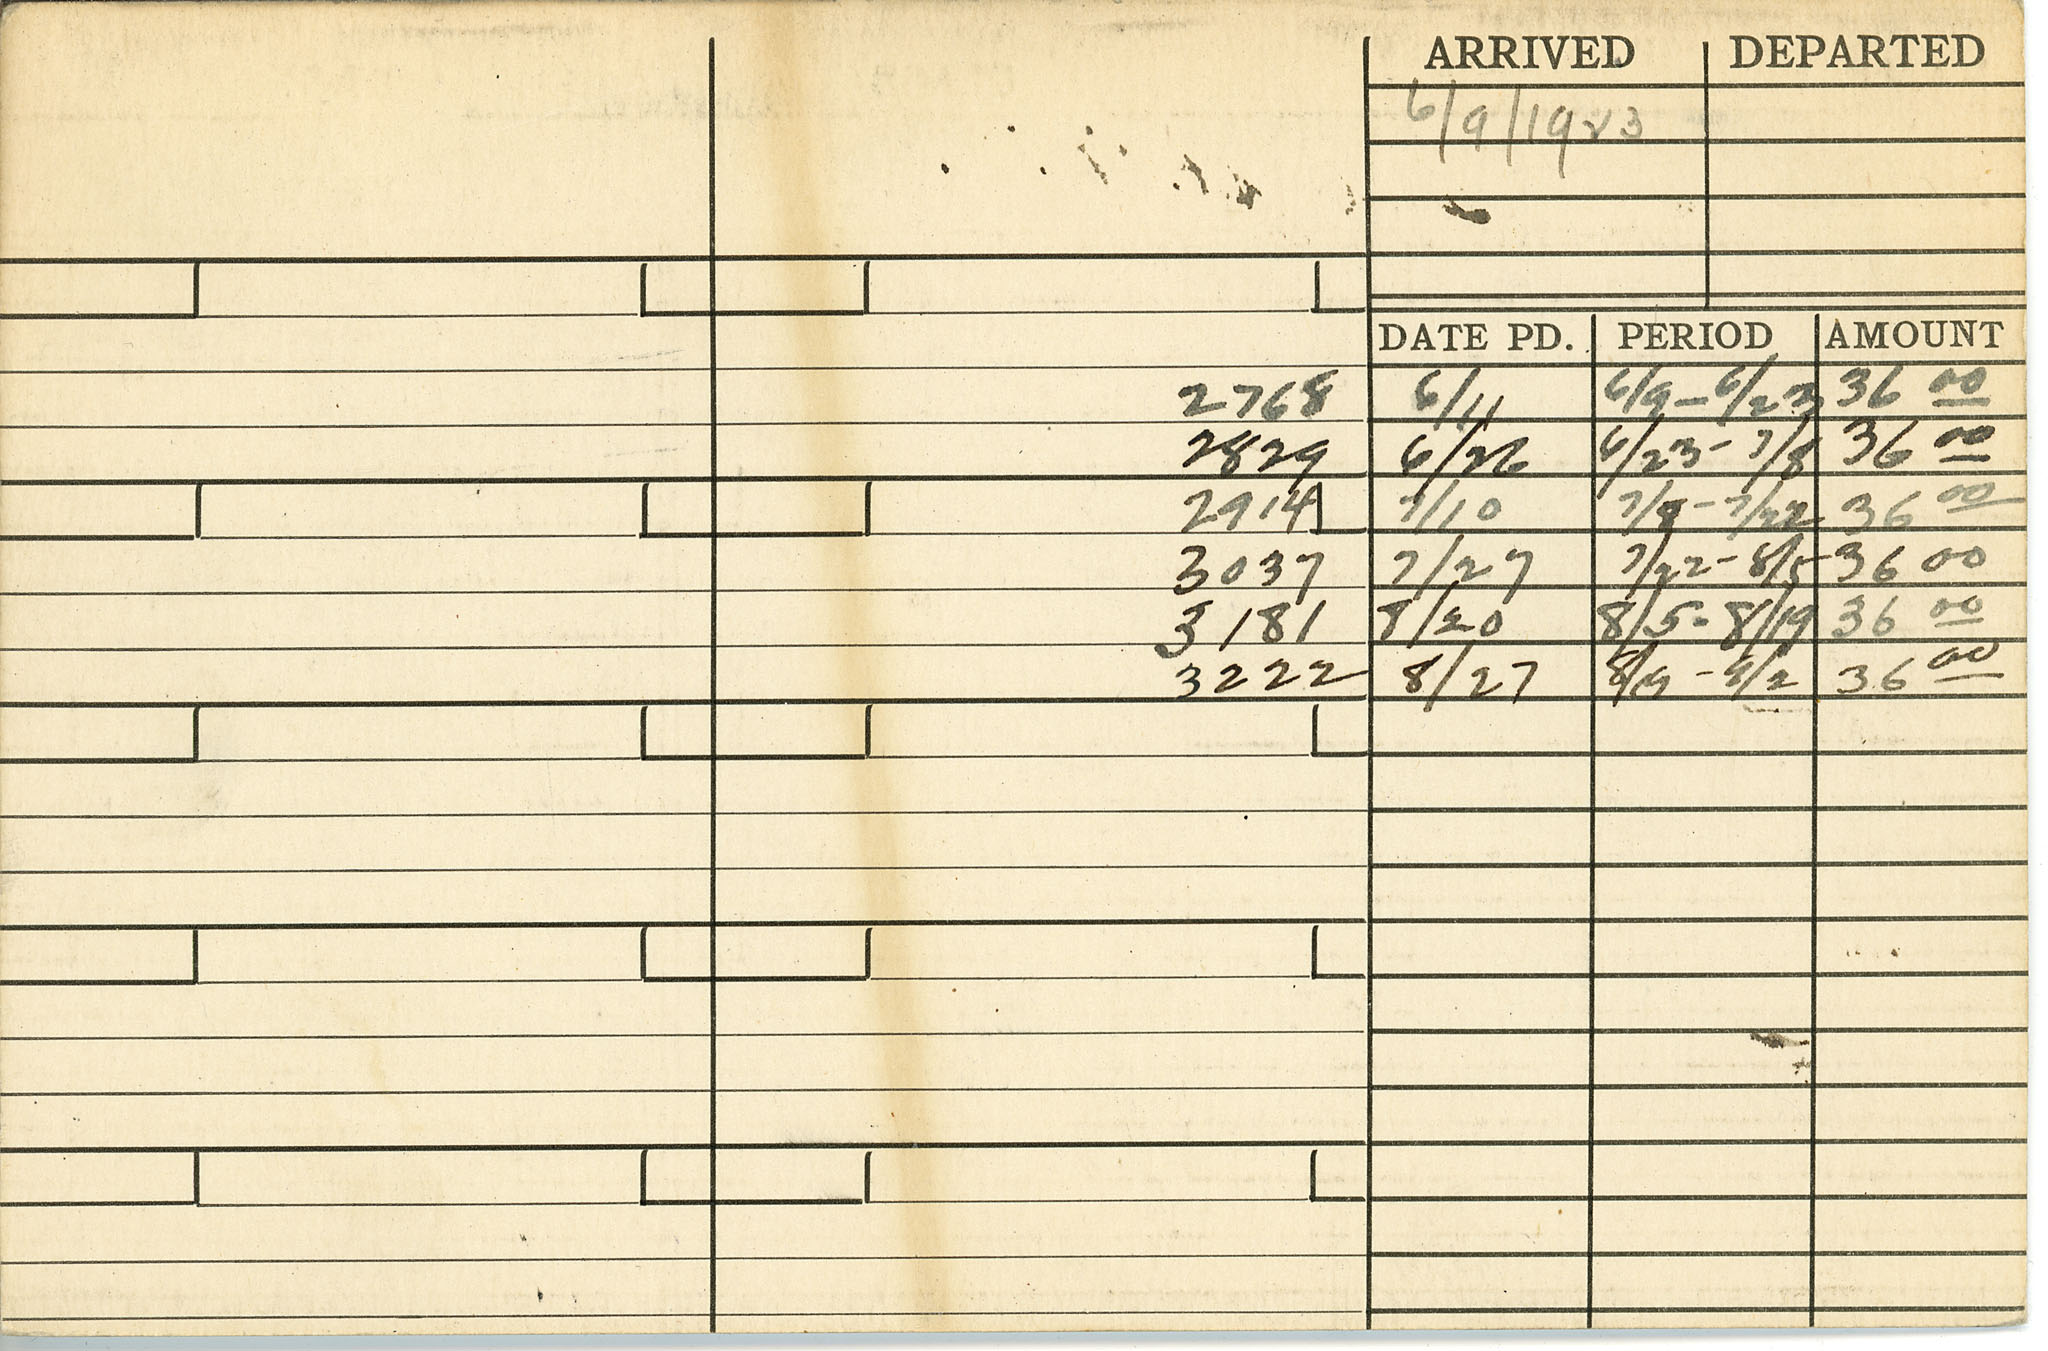 ARRIVED DEPARTED
6/9/1923
DATE PD. PERIOD AMOUNT
2768 6/11 6/9 - 6/23 36 00
2829 6/26 6/23 - 7/8 36 00
2914 7/10 7/8 - 7/22 36 00
3037 7/27 7/22 - 8/5 36 00
3181 8/20 8/5 - 8/19 36 00
3222 8/27 8/19 - 9/2 36 00